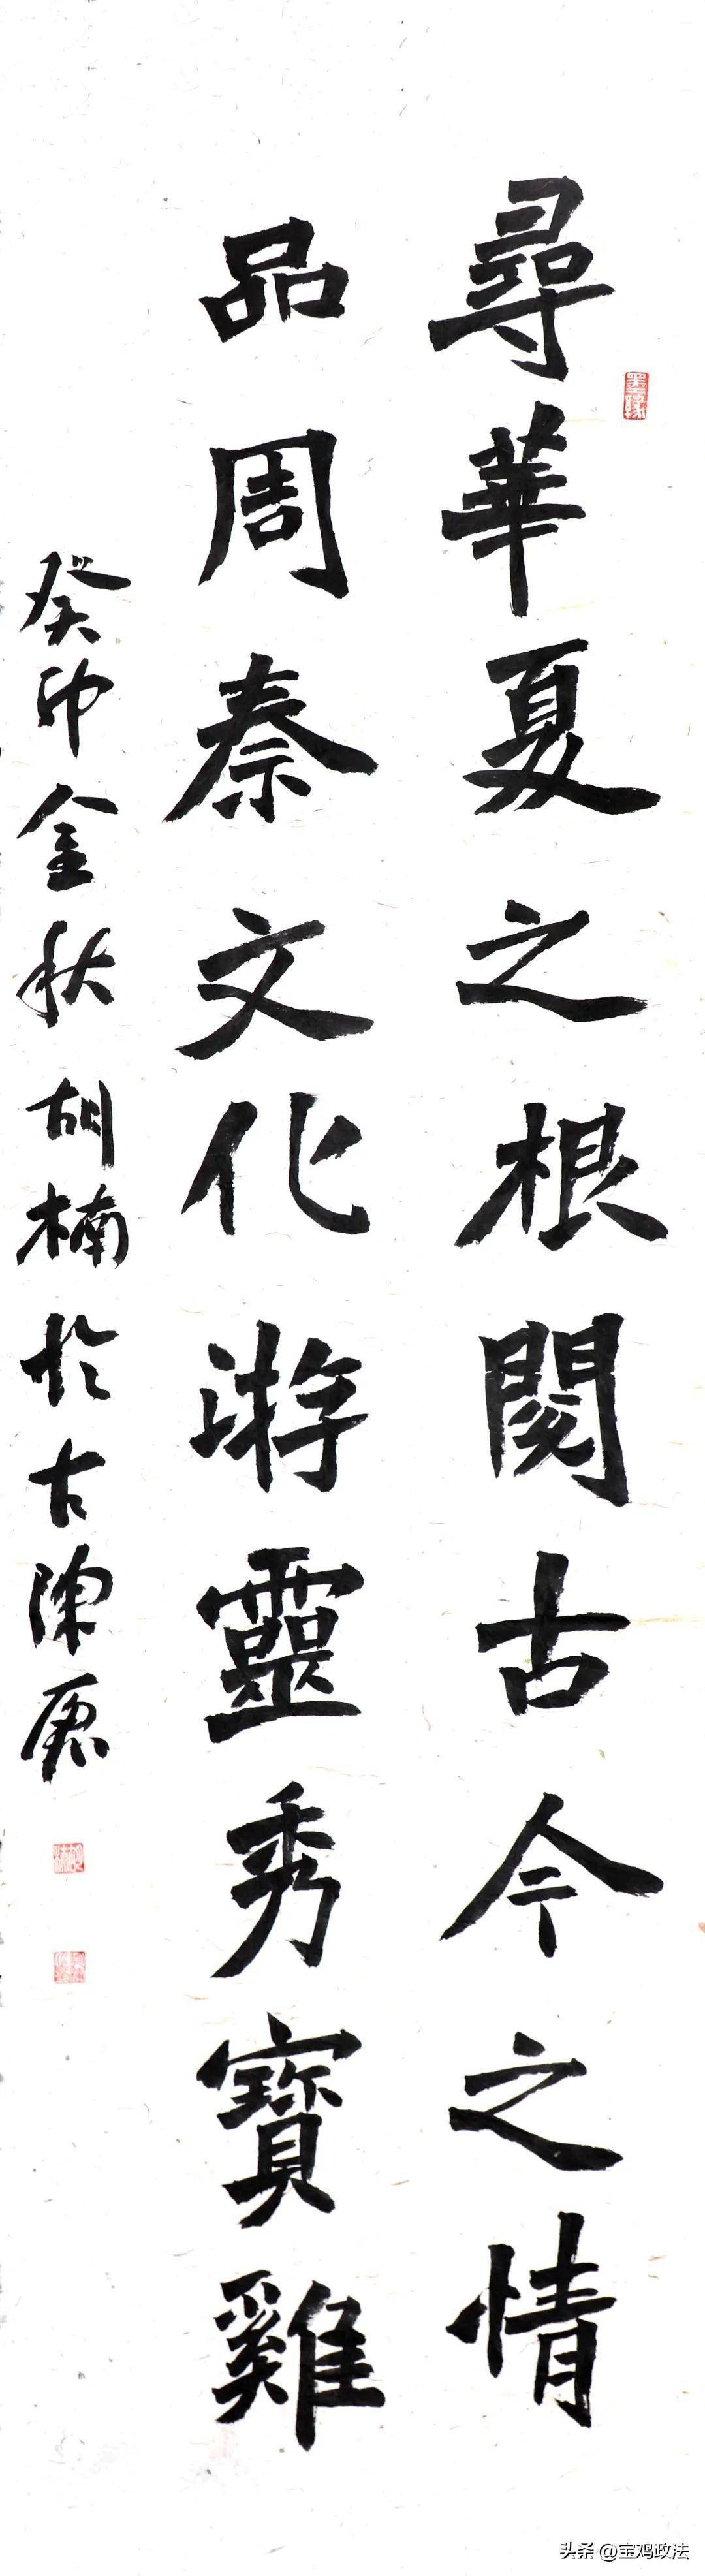 尋華夏之根閱古今之情
品周秦文化游靈秀寶雞
癸卯金秋胡楠於古陳倉
墨緣
头条 @宝鸡政法